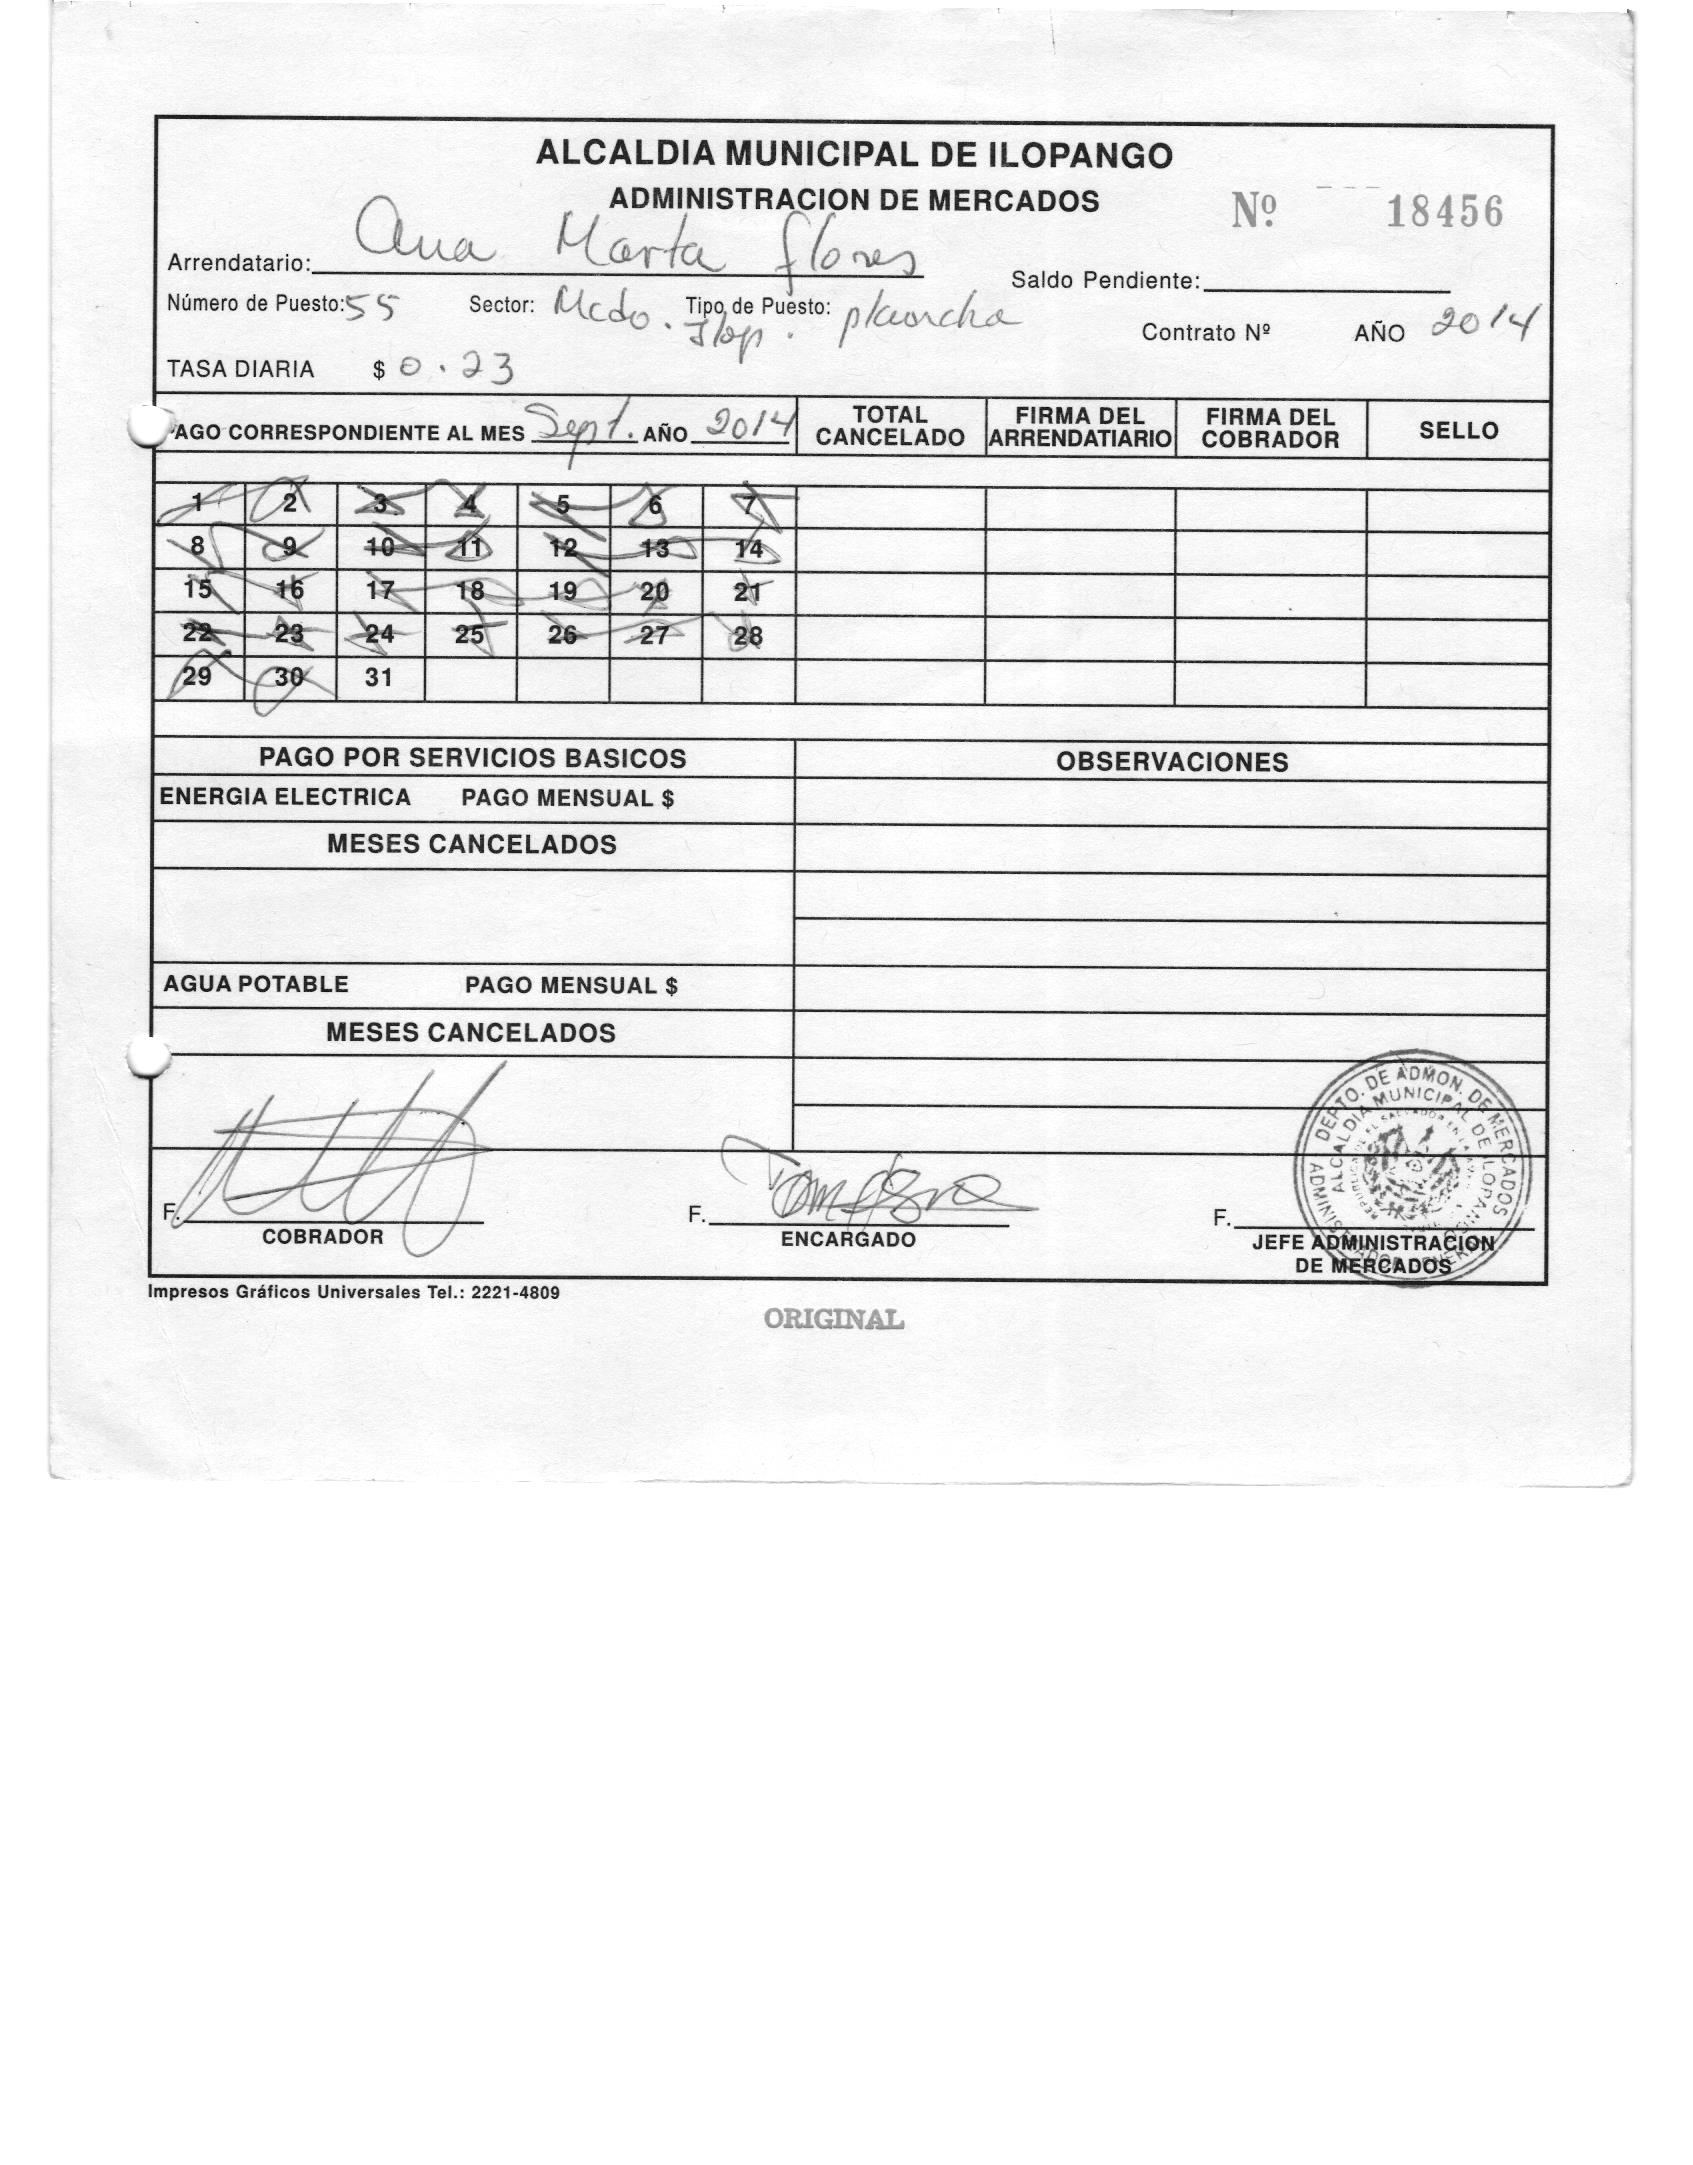 ALCALDIA MUNICIPAL DE ILOPANGO
ADMINISTRACION DE MERCADOS
Nº 18456
Arrendatario: Ana Marta flores
Saldo Pendiente:
Número de Puesto: 55 Sector: Mcdo. Ilop. Tipo de Puesto: plancha
Contrato Nº AÑO 2014
TASA DIARIA $ 0.23
PAGO CORRESPONDIENTE AL MES Sept. AÑO 2014 TOTAL CANCELADO FIRMA DEL ARRENDATIARIO FIRMA DEL COBRADOR SELLO
1 2 3 4 5 6 7
8 9 10 11 12 13 14
15 16 17 18 19 20 21
22 23 24 25 26 27 28
29 30 31
PAGO POR SERVICIOS BASICOS OBSERVACIONES
ENERGIA ELECTRICA PAGO MENSUAL $
MESES CANCELADOS
AGUA POTABLE PAGO MENSUAL $
MESES CANCELADOS
DEPTO. DE ADMON. DE MERCADOS
ALCALDIA MUNICIPAL DE ILOPANGO
F. F. F.
COBRADOR ENCARGADO JEFE ADMINISTRACION
DE MERCADOS
Impresos Gráficos Universales Tel.: 2221-4809
ORIGINAL